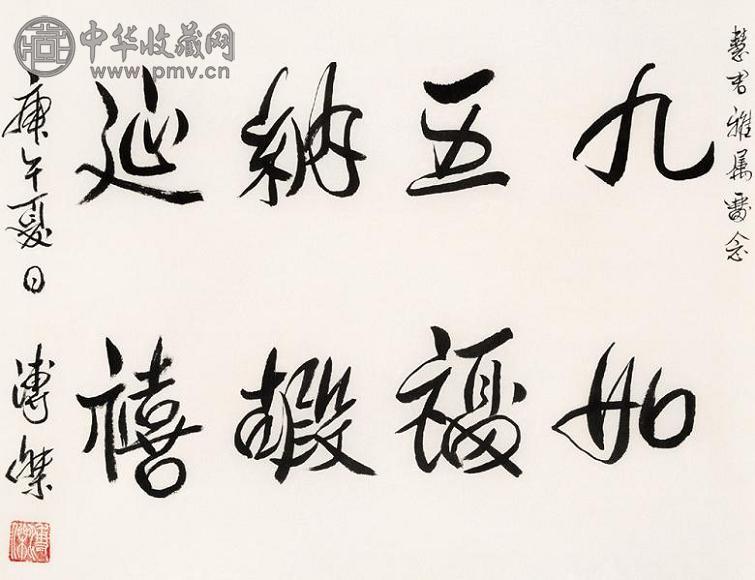 慧君雅属留念
九如
五福
納嘏
延禧
庚午夏日 溥傑
中华收藏网
www.pmv.cn